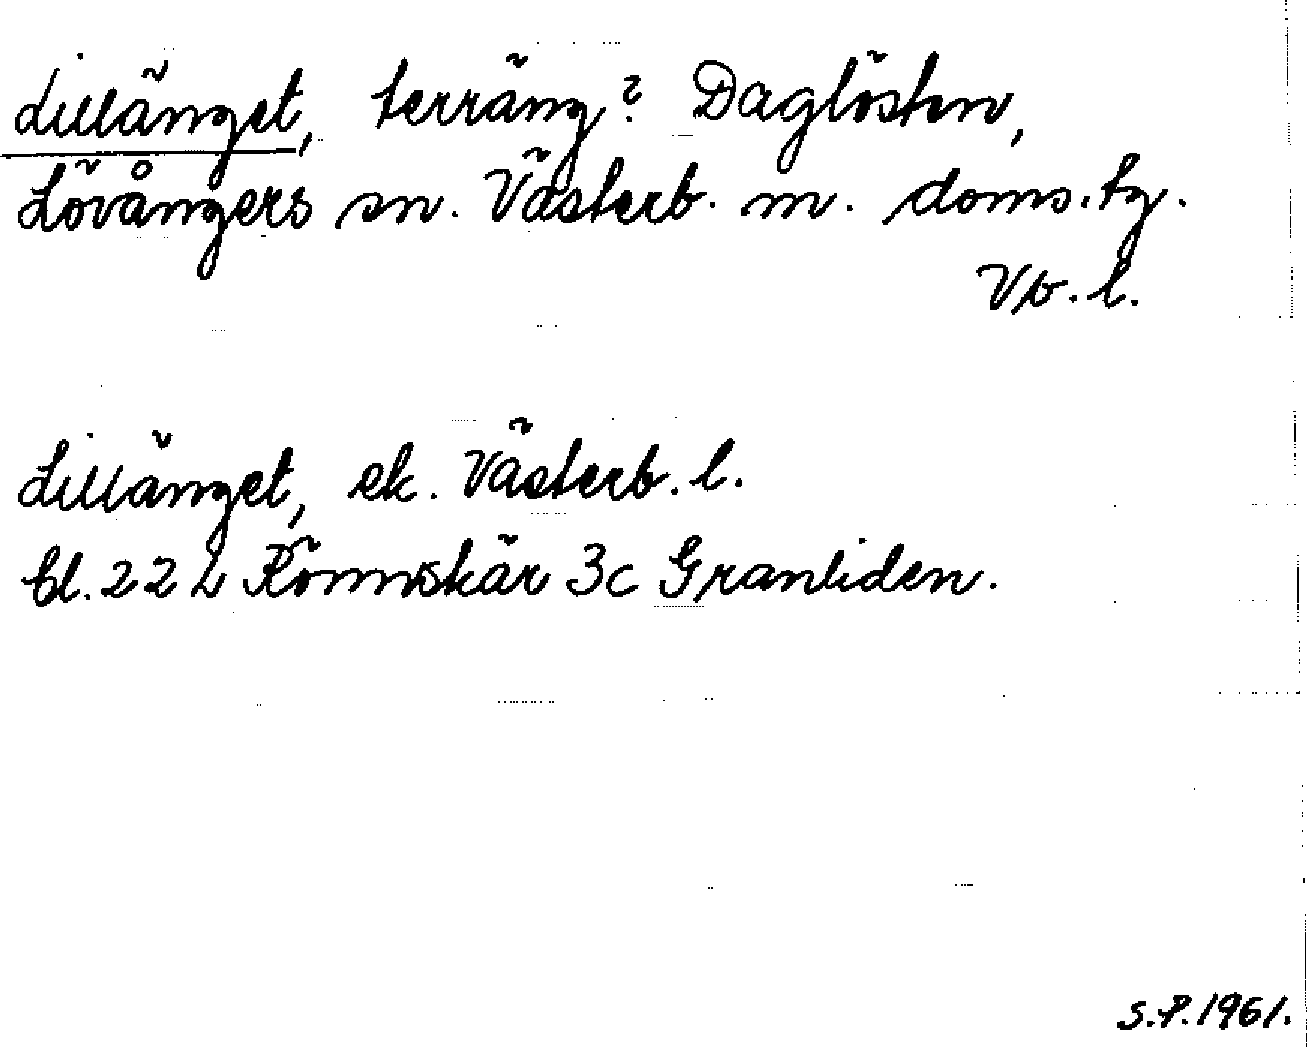 Lillänget, terräng? Daglösten,
Lövångers sn. Västerb. m. doms. tg.
Vb. l.
Lillänget, ek. Västerb. l.
bl. 22 L Rönnskär 3c Granliden.
S.P. 1961.